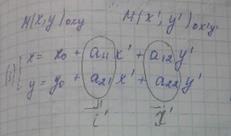 M(x,y)oxy M(x',y')o'x'y'
(1) { x = x₀ + a₁₁x' + a₁₂y'
y = y₀ + a₂₁x' + a₂₂y'
i' j'